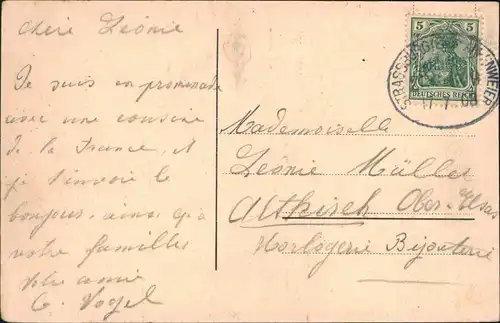 Chère Léonie
Je suis en promenade
avec une cousine
de la France, et
je t'envoie le
bonjour, ainsi qu'a
votre familles
Votre amie
C. Vogel
5
DEUTSCHES REICH
Mademoiselle
Léonie Müller
Altkirch Ober-Elsass
Horlogerie Bijouterie